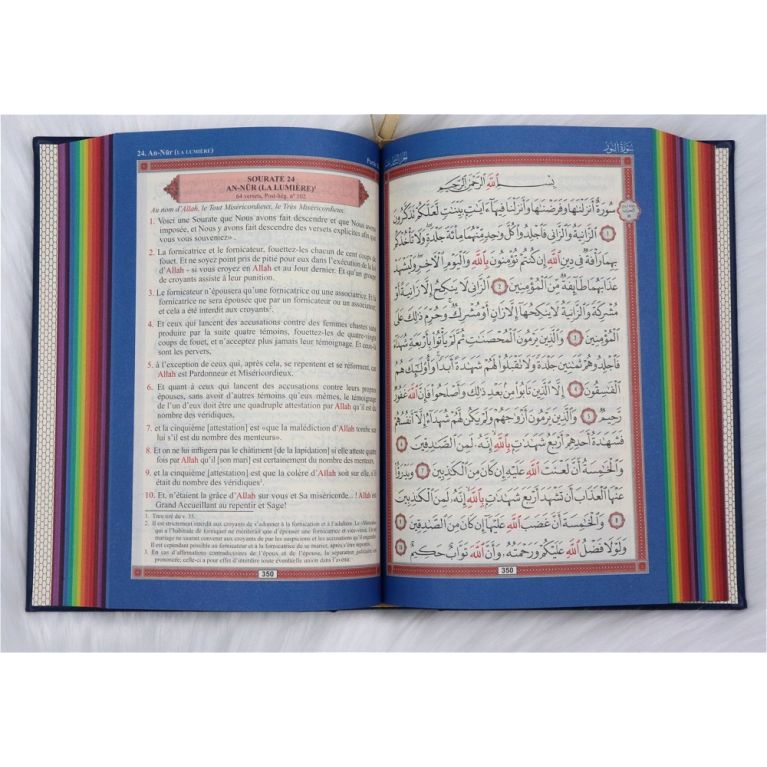 24. An-Nûr (LA LUMIÈRE)
SOURATE 24
AN-NÛR (LA LUMIÈRE)¹
64 versets, Post-hég. n° 102
Au nom d'Allah, le Tout Miséricordieux, le Très Miséricordieux.
1. Voici une Sourate que Nous avons fait descendre et que Nous avons
imposée, et Nous y avons fait descendre des versets explicites afin que
vous vous souveniez» .
2. La fornicatrice et le fornicateur, fouettez-les chacun de cent coups de
fouet. Et ne soyez point pris de pitié pour eux dans l'exécution de la loi
d'Allah - si vous croyez en Allah et au Jour dernier. Et qu'un groupe
de croyants assiste à leur punition.
3. Le fornicateur n'épousera qu'une fornicatrice ou une associatrice. Et la
fornicatrice ne sera épousée que par un fornicateur ou un associateur;
et cela a été interdit aux croyants².
4. Et ceux qui lancent des accusations contre des femmes chastes sans
produire par la suite quatre témoins, fouettez-les de quatre-vingts
coups de fouet, et n'acceptez plus jamais leur témoignage. Et ceux-là
sont les pervers,
5. à l'exception de ceux qui, après cela, se repentent et se réforment, car
Allah est Pardonneur et Miséricordieux.
6. Et quant à ceux qui lancent des accusations contre leurs propres
épouses, sans avoir d'autres témoins qu'eux mêmes, le témoignage
de l'un d'eux doit être une quadruple attestation par Allah qu'il est du
nombre des véridiques,
7. et la cinquième [attestation] est «que la malédiction d'Allah tombe sur
lui s'il est du nombre des menteurs».
8. Et on ne lui infligera pas le châtiment [de la lapidation] si elle atteste quatre
fois par Allah qu'il [son mari] est certainement du nombre des menteurs.
9. et la cinquième [attestation] est que la colère d'Allah soit sur elle, s'il
était du nombre des véridiques³.
10. Et, n'étaient la grâce d'Allah sur vous et Sa miséricorde...! Allah est
Grand Accueillant au repentir et Sage!
1. Titre tiré du v. 35.
2. Il est strictement interdit aux croyants de s'adonner à la fornication et à l'adultère.
qui a l'habitude de forniquer ne
mariage ne sauraient convenir aux croyants de par les suspicions et les accusations
Il est cependant possible au fornicateur et à la fornicatrice de se marier, après s'être repentis.
3. En cas d'affirmations contradictoires de l'époux et de l'épouse, la séparation
prononcée; celle-ci a pour effet d'interdire toute éventuelle union dans l'avenir.
350
سورة النور
بِسْمِ اللَّهِ الرَّحْمَٰنِ الرَّحِيمِ
سُورَةٌ أَنزَلْنَٰهَا وَفَرَضْنَٰهَا وَأَنزَلْنَا فِيهَآ ءَايَٰتٍۭ بَيِّنَٰتٍ لَّعَلَّكُمْ تَذَكَّرُونَ
١ ٱلزَّانِيَةُ وَٱلزَّانِى فَٱجْلِدُوا۟ كُلَّ وَٰحِدٍ مِّنْهُمَا مِا۟ئَةَ جَلْدَةٍ وَلَا تَأْخُذْكُم
بِهِمَا رَأْفَةٌ فِى دِينِ ٱللَّهِ إِن كُنتُمْ تُؤْمِنُونَ بِٱللَّهِ وَٱلْيَوْمِ ٱلْءَاخِرِ وَلْيَشْهَدْ
عَذَابَهُمَا طَآئِفَةٌ مِّنَ ٱلْمُؤْمِنِينَ ٢ ٱلزَّانِى لَا يَنكِحُ إِلَّا زَانِيَةً أَوْ
مُشْرِكَةً وَٱلزَّانِيَةُ لَا يَنكِحُهَآ إِلَّا زَانٍ أَوْ مُشْرِكٌ وَحُرِّمَ ذَٰلِكَ عَلَى
ٱلْمُؤْمِنِينَ ٣ وَٱلَّذِينَ يَرْمُونَ ٱلْمُحْصَنَٰتِ ثُمَّ لَمْ يَأْتُوا۟ بِأَرْبَعَةِ شُهَدَآءَ
فَٱجْلِدُوهُمْ ثَمَٰنِينَ جَلْدَةً وَلَا تَقْبَلُوا۟ لَهُمْ شَهَٰدَةً أَبَدًا وَأُو۟لَٰٓئِكَ هُمُ
ٱلْفَٰسِقُونَ ٤ إِلَّا ٱلَّذِينَ تَابُوا۟ مِنۢ بَعْدِ ذَٰلِكَ وَأَصْلَحُوا۟ فَإِنَّ ٱللَّهَ غَفُورٌ
رَّحِيمٌ ٥ وَٱلَّذِينَ يَرْمُونَ أَزْوَٰجَهُمْ وَلَمْ يَكُن لَّهُمْ شُهَدَآءُ إِلَّآ أَنفُسُهُمْ
فَشَهَٰدَةُ أَحَدِهِمْ أَرْبَعُ شَهَٰدَٰتٍۭ بِٱللَّهِ إِنَّهُۥ لَمِنَ ٱلصَّٰدِقِينَ ٦
وَٱلْخَٰمِسَةُ أَنَّ لَعْنَتَ ٱللَّهِ عَلَيْهِ إِن كَانَ مِنَ ٱلْكَٰذِبِينَ ٧ وَيَدْرَؤُا۟
عَنْهَا ٱلْعَذَابَ أَن تَشْهَدَ أَرْبَعَ شَهَٰدَٰتٍۭ بِٱللَّهِ إِنَّهُۥ لَمِنَ ٱلْكَٰذِبِينَ
٨ وَٱلْخَٰمِسَةَ أَنَّ غَضَبَ ٱللَّهِ عَلَيْهَآ إِن كَانَ مِنَ ٱلصَّٰدِقِينَ ٩
وَلَوْلَا فَضْلُ ٱللَّهِ عَلَيْكُمْ وَرَحْمَتُهُۥ وَأَنَّ ٱللَّهَ تَوَّابٌ حَكِيمٌ ١٠
350